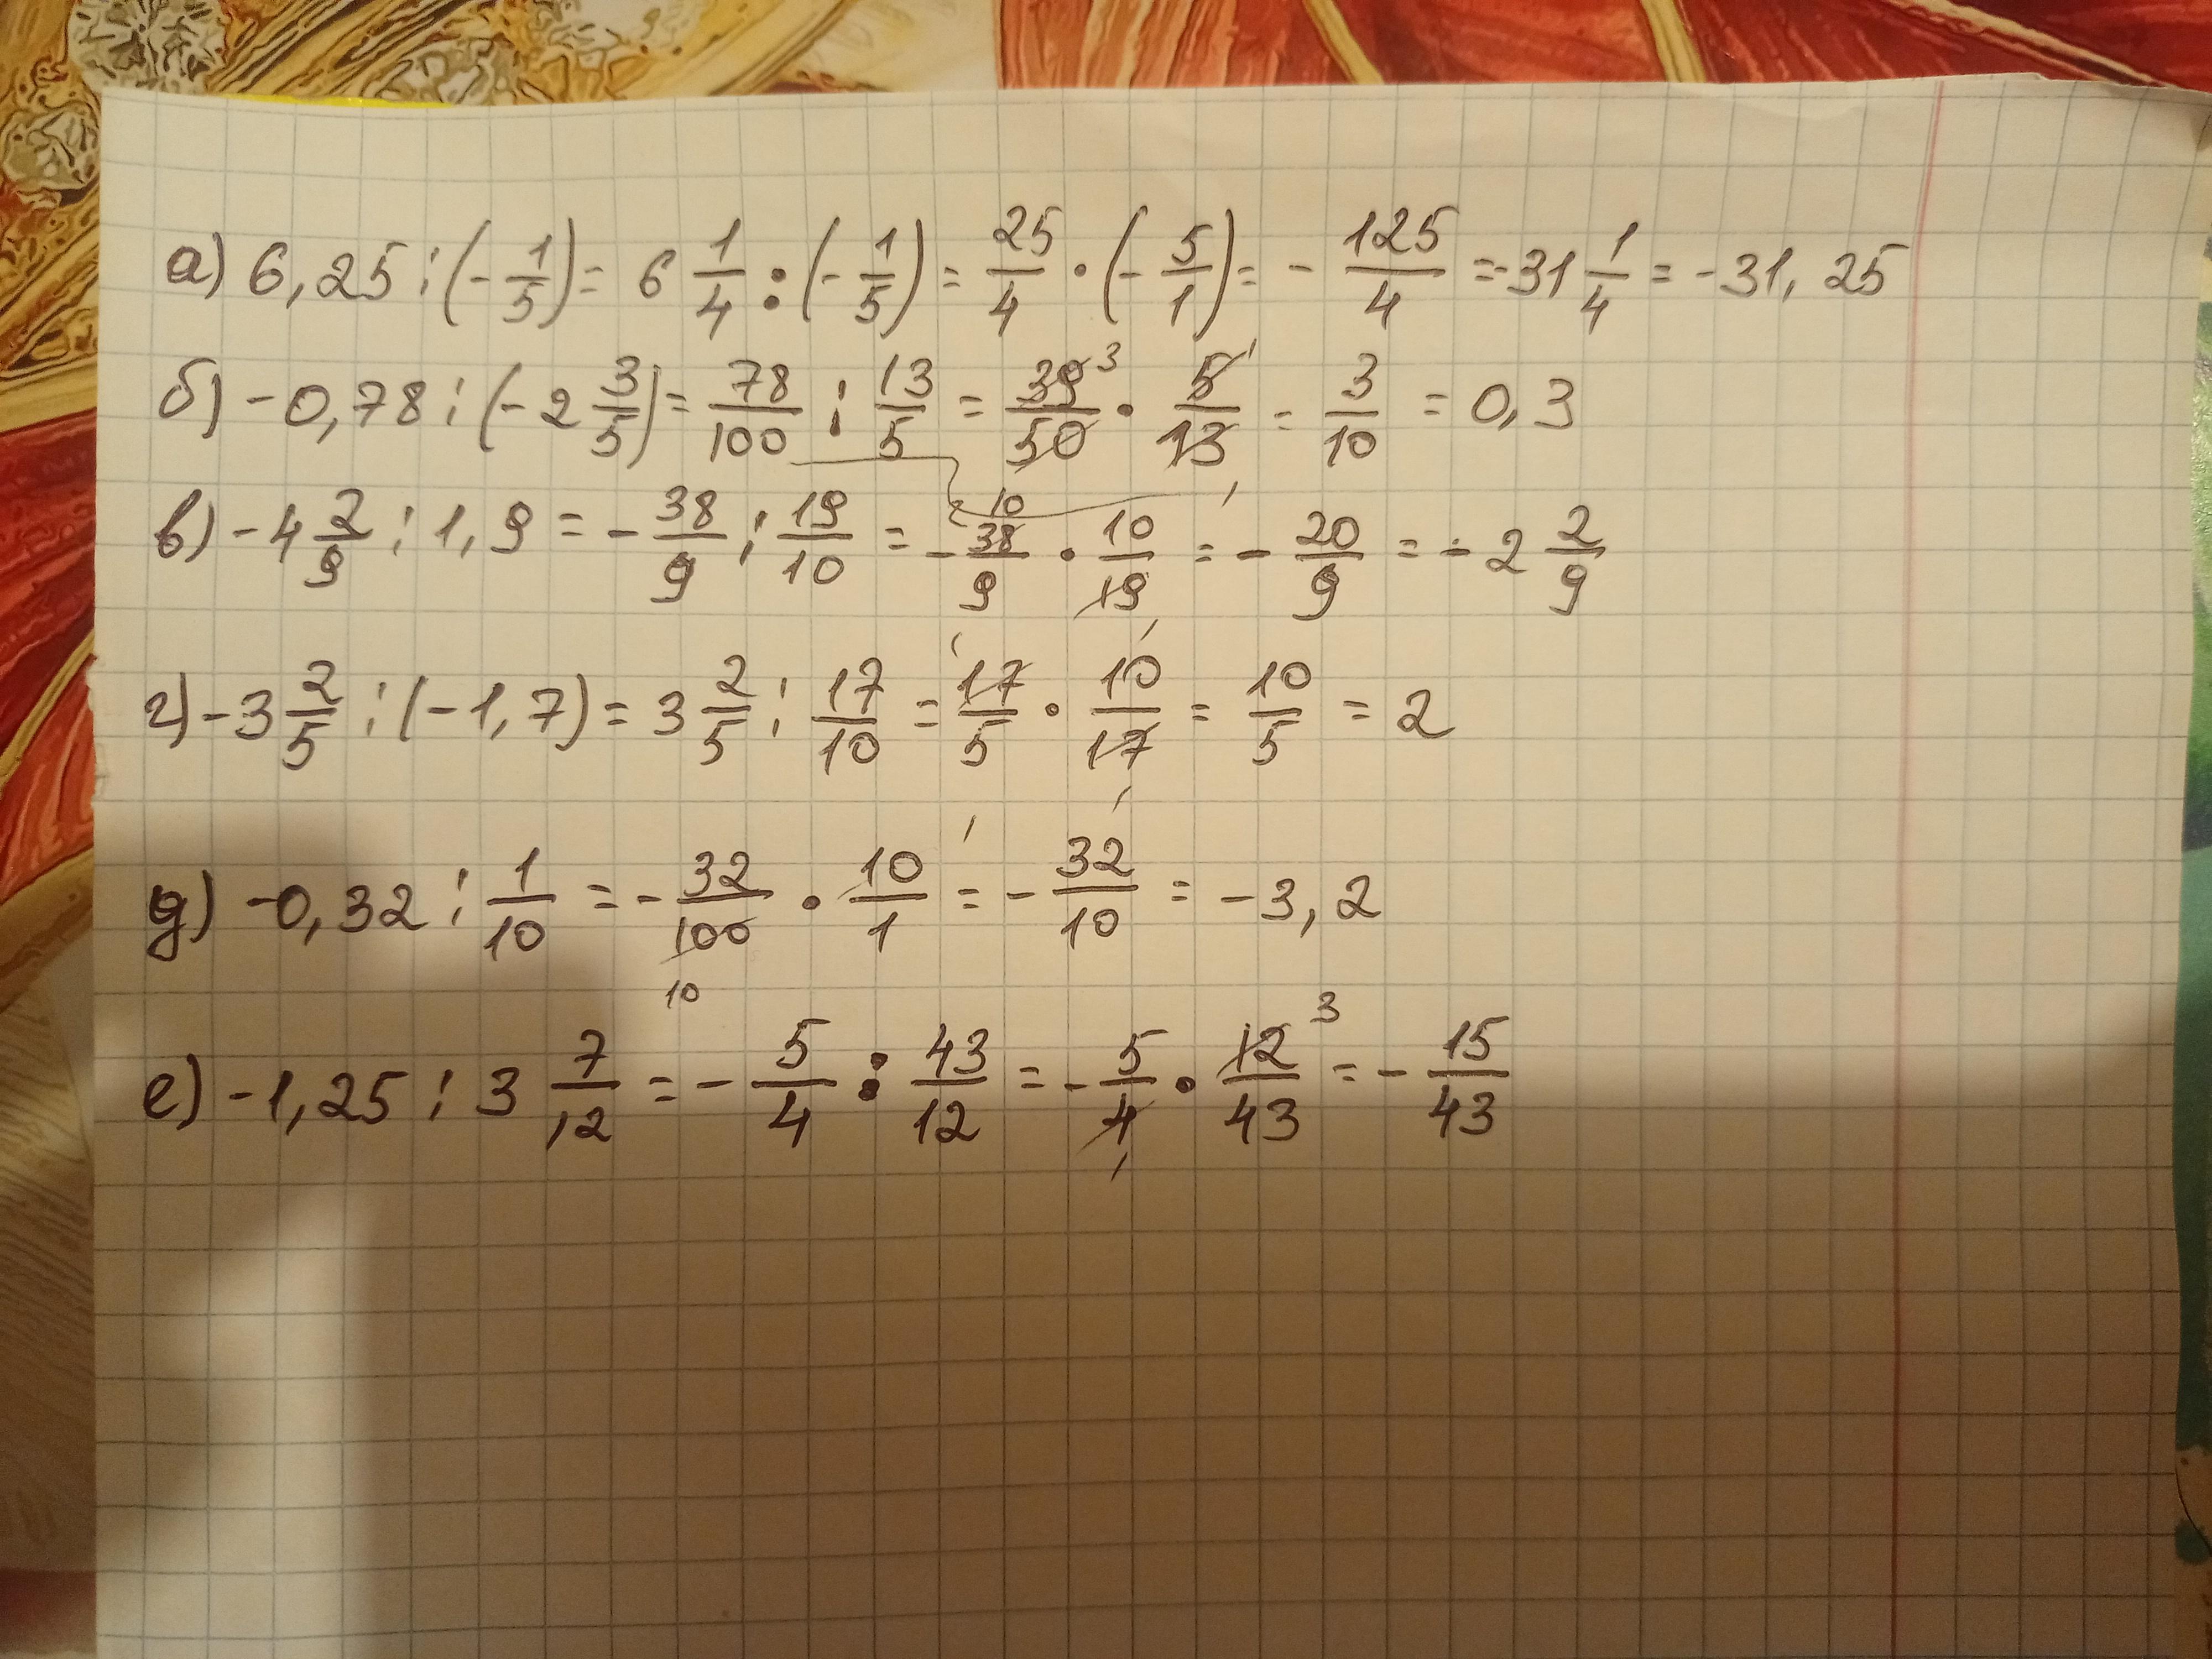 а) 6,25 : (- 1/5) = 6 1/4 : (- 1/5) = 25/4 · (- 5/1) = - 125/4 = -31 1/4 = -31,25
б) -0,78 : (-2 3/5) = 78/100 : 13/5 = 39/50 · 5/13 = 3/10 = 0,3
в) -4 2/9 : 1,9 = - 38/9 : 19/10 = - 38/9 · 10/19 = - 20/9 = -2 2/9
г) -3 2/5 : (-1,7) = 3 2/5 : 17/10 = 17/5 · 10/17 = 10/5 = 2
д) -0,32 : 1/10 = - 32/100 · 10/1 = - 32/10 = -3,2
е) -1,25 : 3 7/12 = - 5/4 : 43/12 = - 5/4 · 12/43 = - 15/43